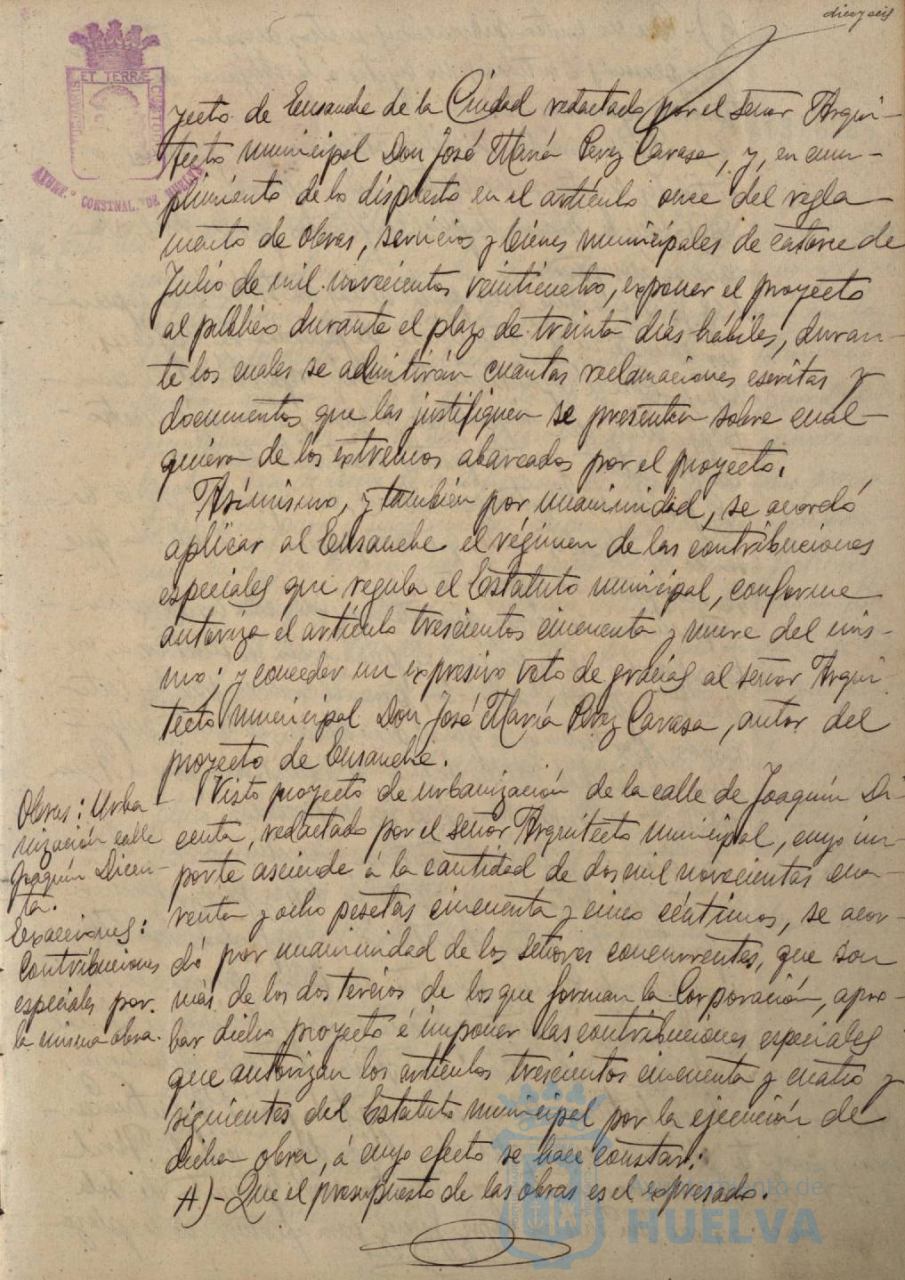 diez y seis
yecto de Ensanche de la Ciudad redactado por el señor Arqui-
tecto municipal Don José María Perez Carasa, y, en cum-
plimiento de lo dispuesto en el artículo once del regla-
mento de obras, servicios y bienes municipales de catorce de
Julio de mil novecientos veinticuatro, exponer el proyecto
al público durante el plazo de treinta días hábiles, duran-
te los cuales se admitirán cuantas reclamaciones escritas y
documentos que las justifiquen se presenten sobre cual-
quiera de los extremos abarcados por el proyecto.
Asimismo, y también por unanimidad, se acordó
aplicar al Ensanche el régimen de las contribuciones
especiales que regula el Estatuto municipal, conforme
autoriza el artículo trescientos cincuenta y nueve del mis-
mo; y conceder un expresivo voto de gracias al señor Arqui-
tecto municipal Don José María Perez Carasa, autor del
proyecto de Ensanche.
Obras: Urba-
nización calle
Joaquín Dicen-
ta.
Exacciones:
Contribuciones
especiales por
la misma obra.
Visto proyecto de urbanización de la calle de Joaquín Di-
centa, redactado por el señor Arquitecto municipal, cuyo im-
porte asciende á la cantidad de dos mil novecientas cua-
renta y ocho pesetas cincuenta y cinco céntimos, se acor-
dó por unanimidad de los señores concurrentes, que son
más de los dos tercios de los que forman la Corporación, apro-
bar dicho proyecto é imponer las contribuciones especiales
que autorizan los artículos trescientos cincuenta y cuatro y
siguientes del Estatuto municipal por la ejecución de
dicha obra, á cuyo efecto se hace constar:
A)- Que el presupuesto de las obras es el expresado.
ET TERRÆ
AYUNT.º CONSTNAL. DE HUELVA
Ayuntamiento de
HUELVA